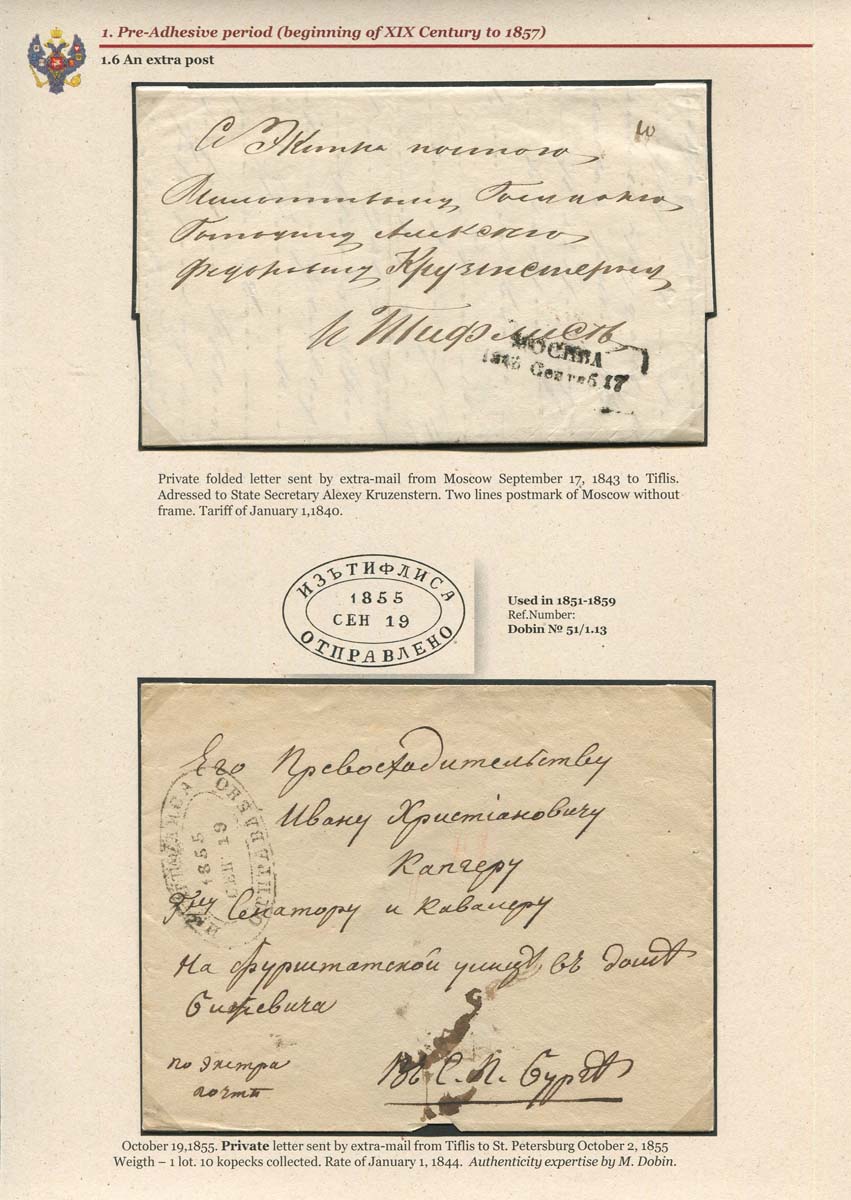 1. Pre-Adhesive period (beginning of XIX Century to 1857)
1.6 An extra post
10
С Экстра почтою
Милостивому Государю
Господину Алексею
Федоровичу Крузенстерну
в Тифлисъ
МОСКВА
1843 Сентяб. 17
Private folded letter sent by extra-mail from Moscow September 17, 1843 to Tiflis.
Adressed to State Secretary Alexey Kruzenstern. Two lines postmark of Moscow without
frame. Tariff of January 1,1840.
ИЗЪ ТИФЛИСА
1855
СЕН 19
ОТПРАВЛЕНО
Used in 1851-1859
Ref.Number:
Dobin № 51/1.13
Его Превосходительству
Ивану Христіановичу
Капгеру
Гну Сенатору и Кавалеру
На Фурштатской улицѣ въ домѣ
по Экстра
почтѣ
Въ С. П. Бургѣ
ИЗЪ ТИФЛИСА
1855
СЕН 19
ОТПРАВЛЕНО
October 19,1855. Private letter sent by extra-mail from Tiflis to St. Petersburg October 2, 1855
Weigth – 1 lot. 10 kopecks collected. Rate of January 1, 1844. Authenticity expertise by M. Dobin.